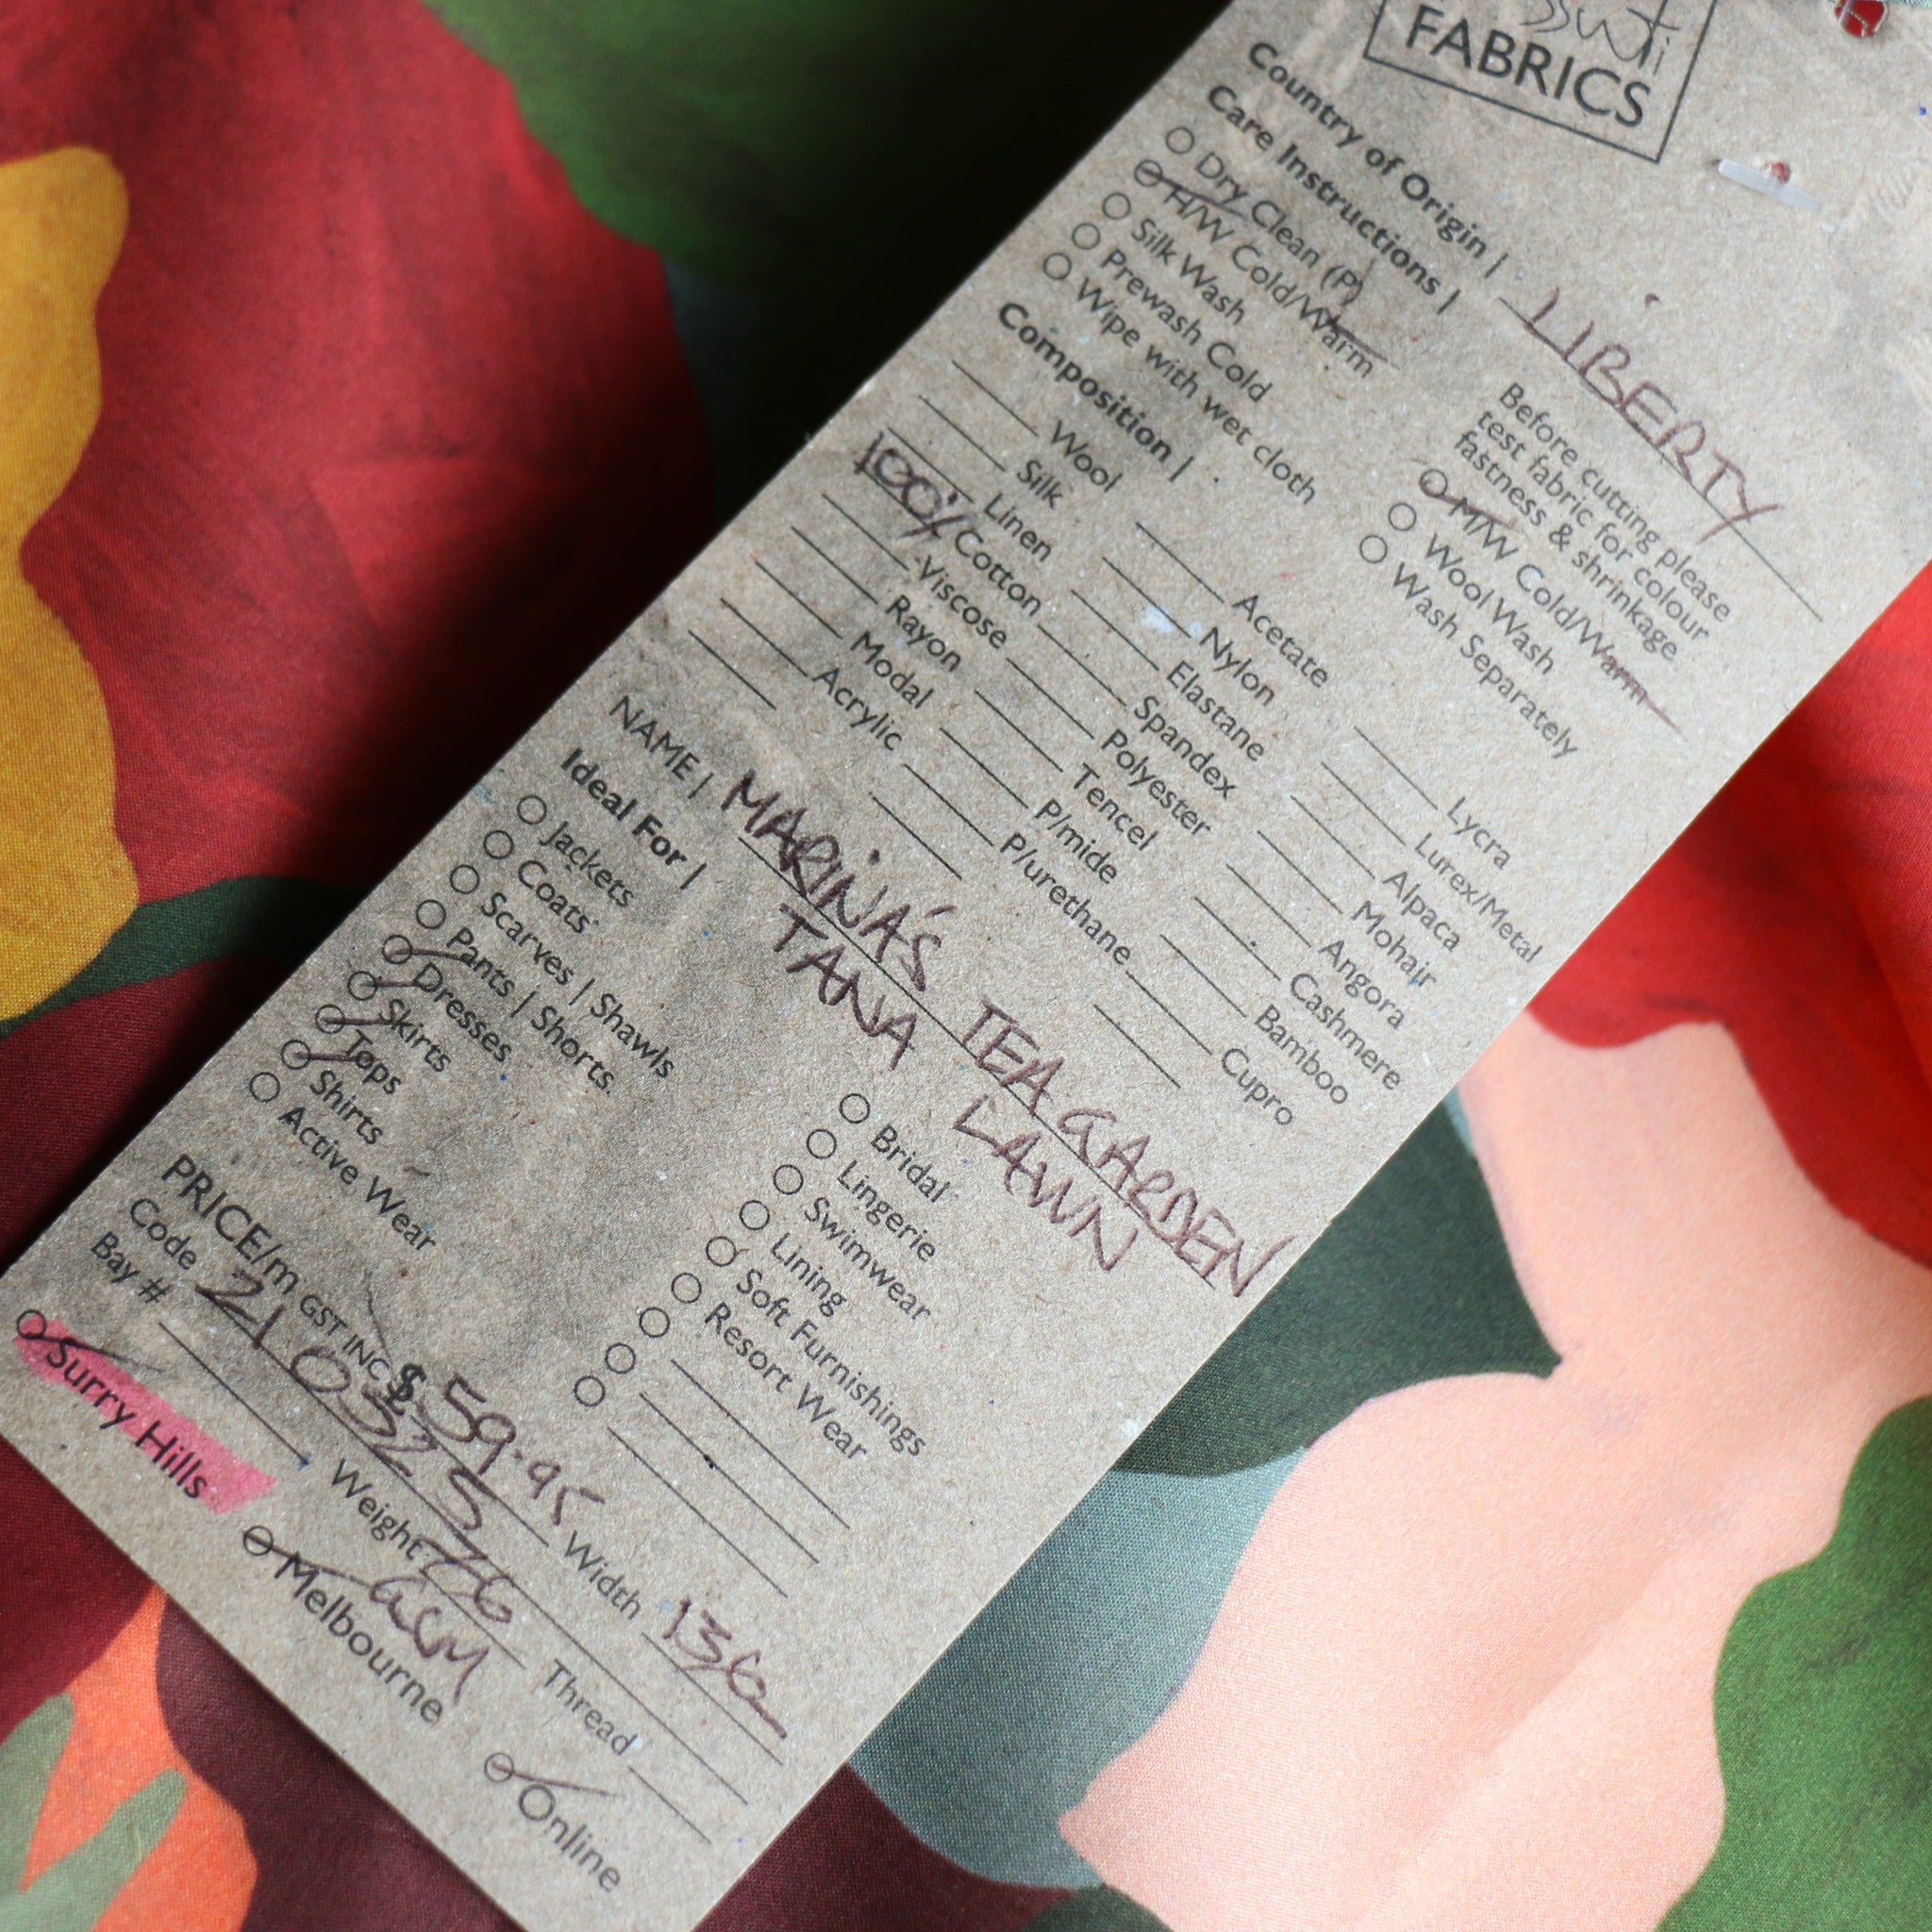 FABRICS
Country of Origin | LIBERTY
Care Instructions |
Before cutting please
test fabric for colour
fastness & shrinkage
Dry Clean (P)
H/W Cold/Warm
Silk Wash
Prewash Cold
Wipe with wet cloth
M/W Cold/Warm
Wool Wash
Wash Separately
Composition |
Wool
Silk
Linen
100% Cotton
Viscose
Rayon
Modal
Acrylic
Acetate
Nylon
Elastane
Spandex
Polyester
Tencel
P/mide
P/urethane
Lycra
Lurex/Metal
Alpaca
Mohair
Angora
Cashmere
Bamboo
Cupro
NAME | MARINA'S TEA GARDEN
TANA LAWN
Ideal For |
Jackets
Coats
Scarves | Shawls
Pants | Shorts
Dresses
Skirts
Tops
Shirts
Active Wear
Bridal
Lingerie
Swimwear
Lining
Soft Furnishings
Resort Wear
PRICE/m GST INC $ 59.95 Width
Code 210325
Bay # Weight 76 Thread
Surry Hills Melbourne Online